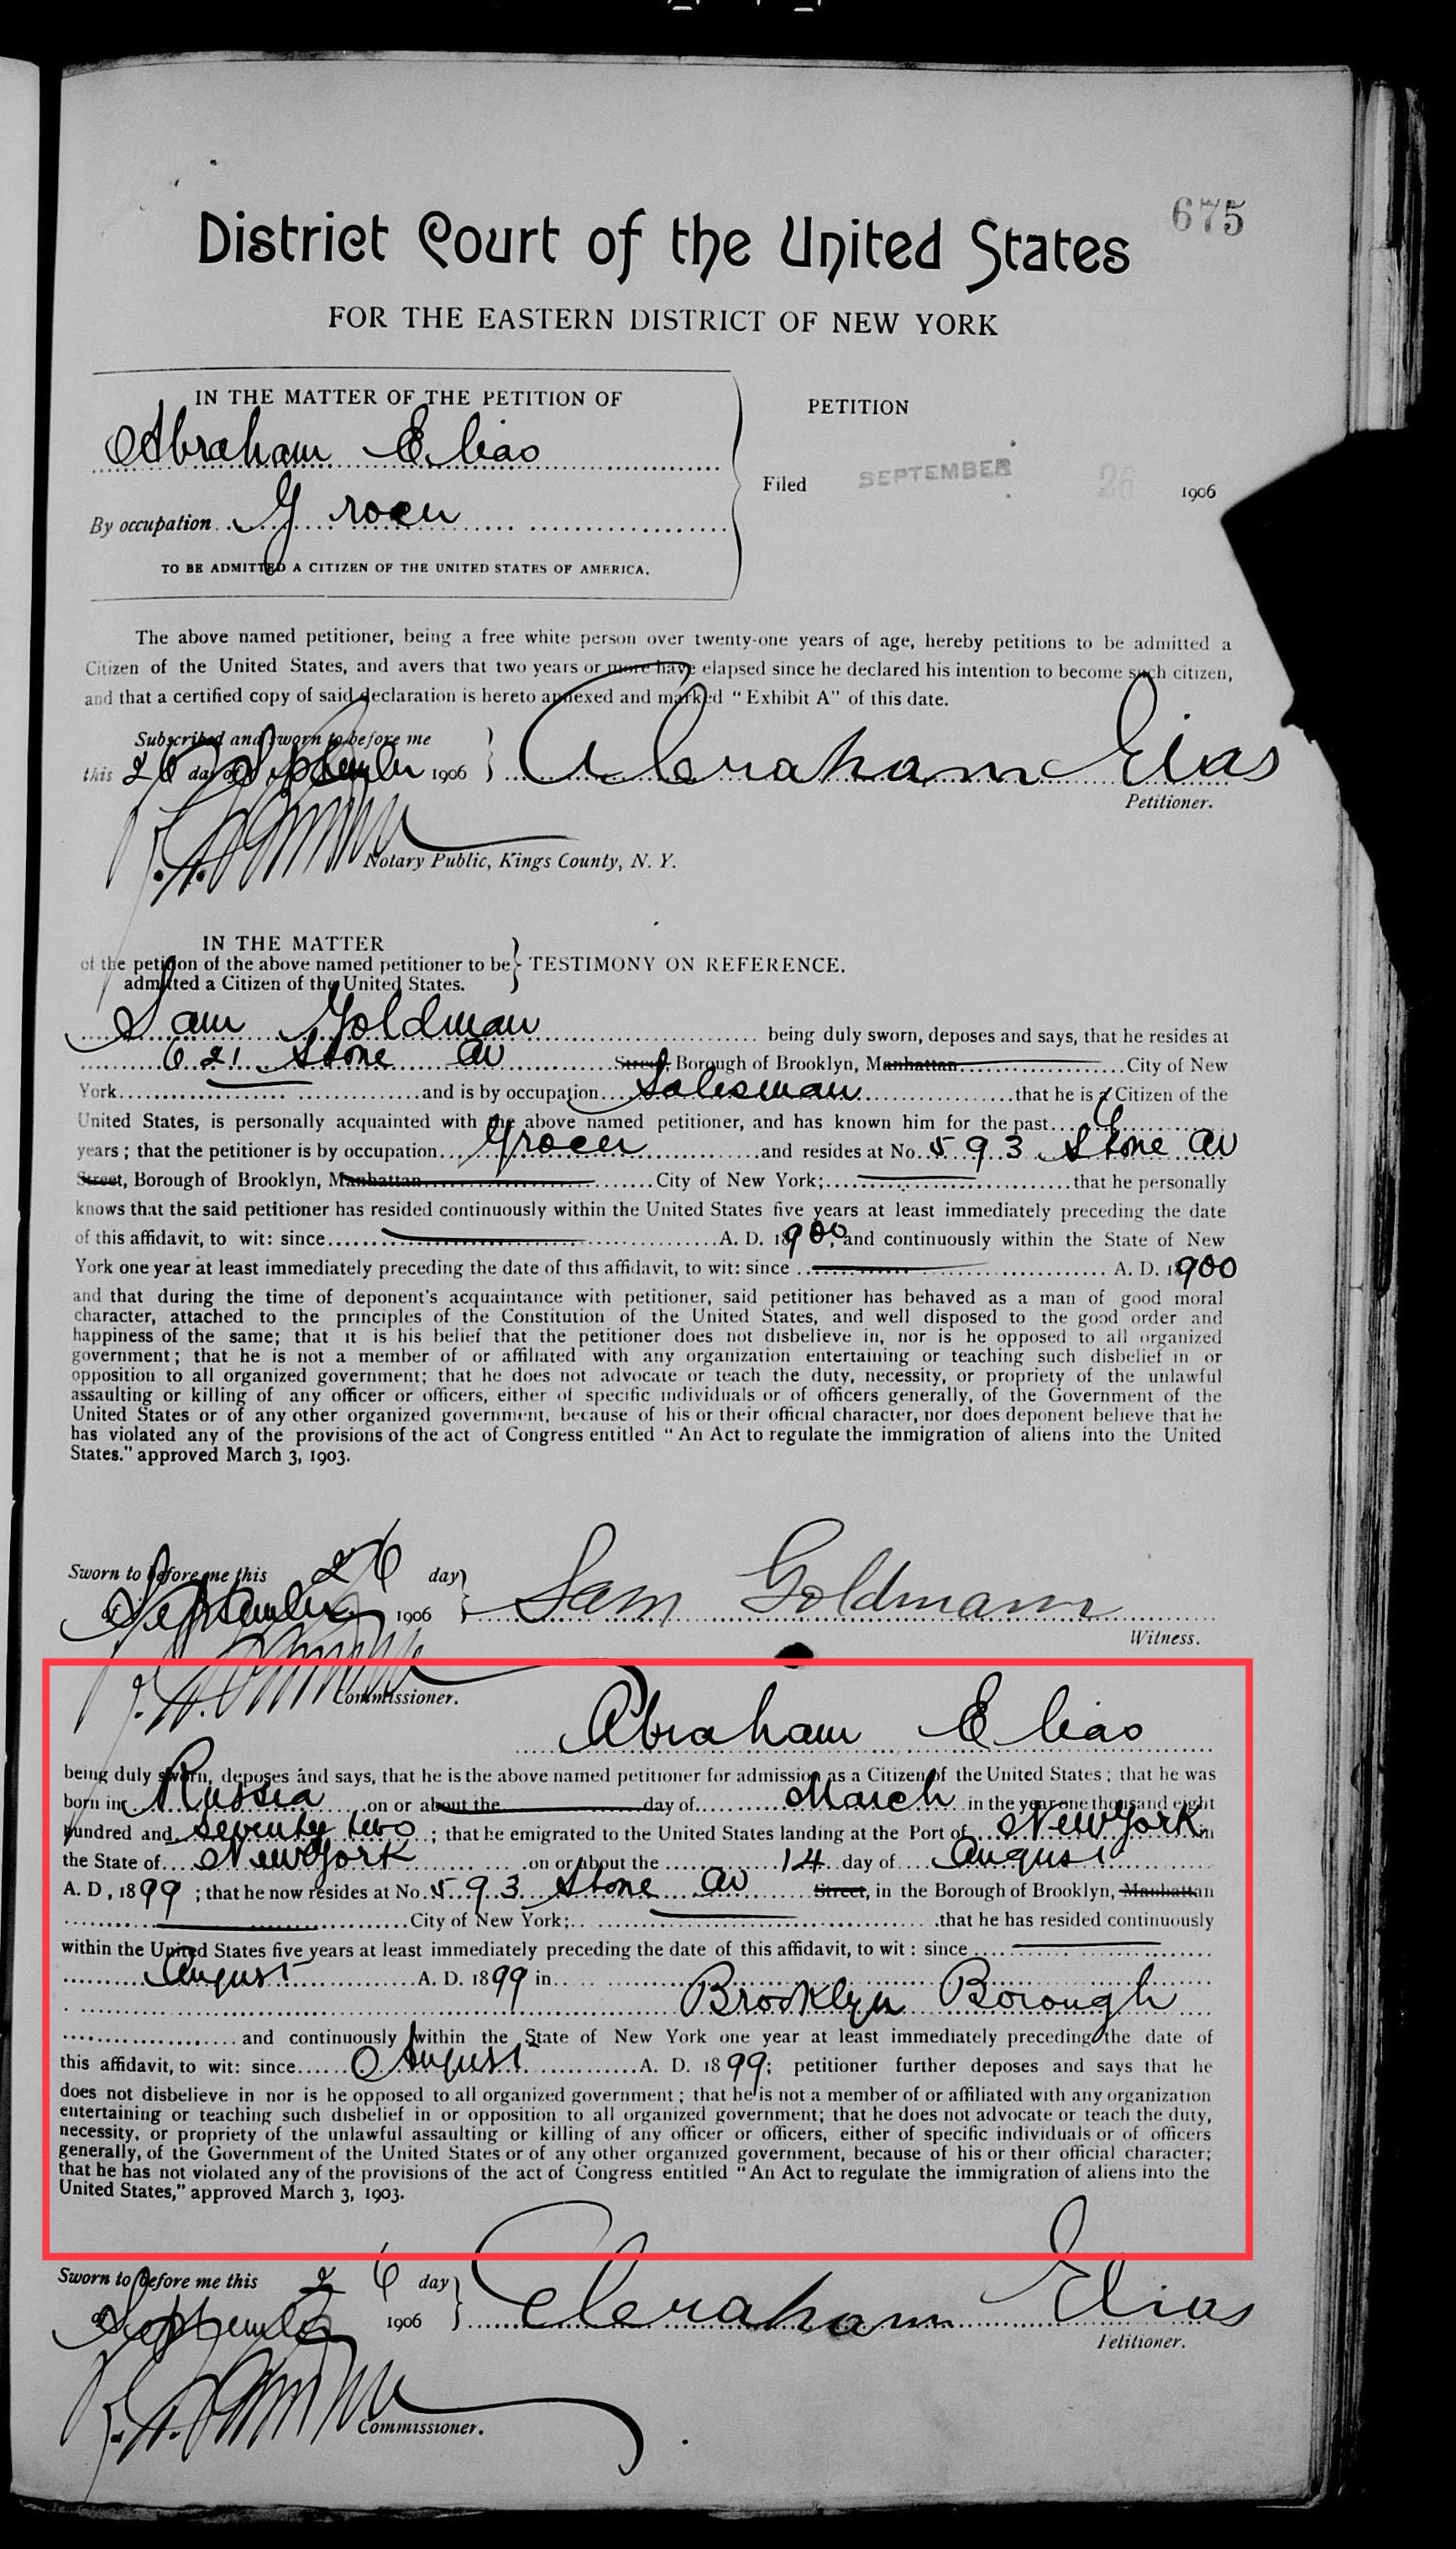 675
District Court of the United States
FOR THE EASTERN DISTRICT OF NEW YORK
IN THE MATTER OF THE PETITION OF
Abraham Elias
By occupation Grocer
TO BE ADMITTED A CITIZEN OF THE UNITED STATES OF AMERICA.
PETITION
Filed SEPTEMBER 26 1906
The above named petitioner, being a free white person over twenty-one years of age, hereby petitions to be admitted a
Citizen of the United States, and avers that two years or more have elapsed since he declared his intention to become such citizen,
and that a certified copy of said declaration is hereto annexed and marked "Exhibit A" of this date.
Subscribed and sworn to before me
this 26 day of September 1906
Abraham Elias
Petitioner.
Notary Public, Kings County, N. Y.
IN THE MATTER
of the petition of the above named petitioner to be
admitted a Citizen of the United States.
TESTIMONY ON REFERENCE.
Sam Goldman being duly sworn, deposes and says, that he resides at
621 Stone Av Street, Borough of Brooklyn, Manhattan City of New
York and is by occupation Salesman that he is a Citizen of the
United States, is personally acquainted with the above named petitioner, and has known him for the past 6
years; that the petitioner is by occupation Grocer and resides at No. 593 Stone Av
Street, Borough of Brooklyn, Manhattan City of New York; that he personally
knows that the said petitioner has resided continuously within the United States five years at least immediately preceding the date
of this affidavit, to wit: since A. D. 1900, and continuously within the State of New
York one year at least immediately preceding the date of this affidavit, to wit: since A. D. 1900
and that during the time of deponent's acquaintance with petitioner, said petitioner has behaved as a man of good moral
character, attached to the principles of the Constitution of the United States, and well disposed to the good order and
happiness of the same; that it is his belief that the petitioner does not disbelieve in, nor is he opposed to all organized
government; that he is not a member of or affiliated with any organization entertaining or teaching such disbelief in or
opposition to all organized government; that he does not advocate or teach the duty, necessity, or propriety of the unlawful
assaulting or killing of any officer or officers, either of specific individuals or of officers generally, of the Government of the
United States or of any other organized government, because of his or their official character, nor does deponent believe that he
has violated any of the provisions of the act of Congress entitled "An Act to regulate the immigration of aliens into the United
States." approved March 3, 1903.
Sworn to before me this 26 day
of September 1906
Sam Goldmann
Witness.
Commissioner.
Abraham Elias
being duly sworn, deposes and says, that he is the above named petitioner for admission as a Citizen of the United States; that he was
born in Russia on or about the day of March in the year one thousand eight
hundred and seventy two; that he emigrated to the United States landing at the Port of New York in
the State of New York on or about the 14 day of August
A. D, 1899; that he now resides at No. 593 Stone Av Street, in the Borough of Brooklyn, Manhattan
City of New York; that he has resided continuously
within the United States five years at least immediately preceding the date of this affidavit, to wit: since
August A. D. 1899 in
Brooklyn Borough
and continuously within the State of New York one year at least immediately preceding the date of
this affidavit, to wit: since August A. D. 1899; petitioner further deposes and says that he
does not disbelieve in nor is he opposed to all organized government; that he is not a member of or affiliated with any organization
entertaining or teaching such disbelief in or opposition to all organized government; that he does not advocate or teach the duty,
necessity, or propriety of the unlawful assaulting or killing of any officer or officers, either of specific individuals or of officers
generally, of the Government of the United States or of any other organized government, because of his or their official character;
that he has not violated any of the provisions of the act of Congress entitled "An Act to regulate the immigration of aliens into the
United States," approved March 3, 1903.
Sworn to before me this 26 day
of September 1906
Abraham Elias
Petitioner.
Commissioner.